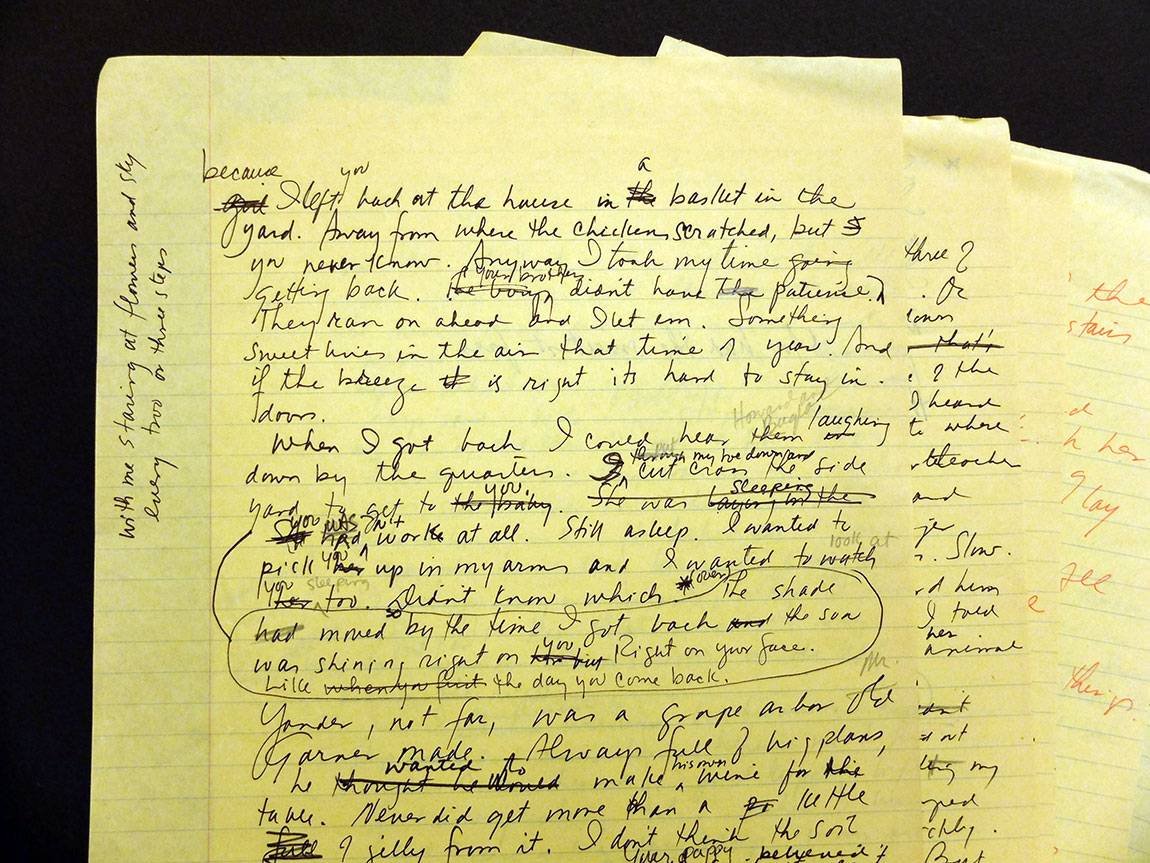 with me staring at flowers and sky
every two or three steps
because you a
I left back at the house in the basket in the
yard. Away from where the chickens scratched, but
you never know. Anyway I took my time going
your brothers
getting back. The boys didn't have the patience.
They ran on ahead and I let em. Something
sweet lives in the air that time of year. And
if the breeze is right its hard to stay in
doors.
laughing
When I got back I could hear them
through my toe down and
down by the quarters. I cut cross the side
you sleeping
yard to get to the baby. She was laying in the
you
had work at all. Still asleep. I wanted to
you look at
pick her up in my arms and I wanted to watch
you sleeping
her too. Didn't know which. The shade
had moved by the time I got back and the sun
you
was shining right on Right on your face.
Like when you the day you come back.
Yonder, not far, was a grape arbor Old
Garner made. Always full of big plans,
wanted to his own
he thought he would make wine for his
table. Never did get more than a kettle
full of jelly from it. I don't think the soil
Your pappy believed
three ?
. Or
that's
of the
I heard
to where
teacher
and
. Slow.
d him
I told
her
animal
out
my
the
stairs
d
her
lay
see
e
things.